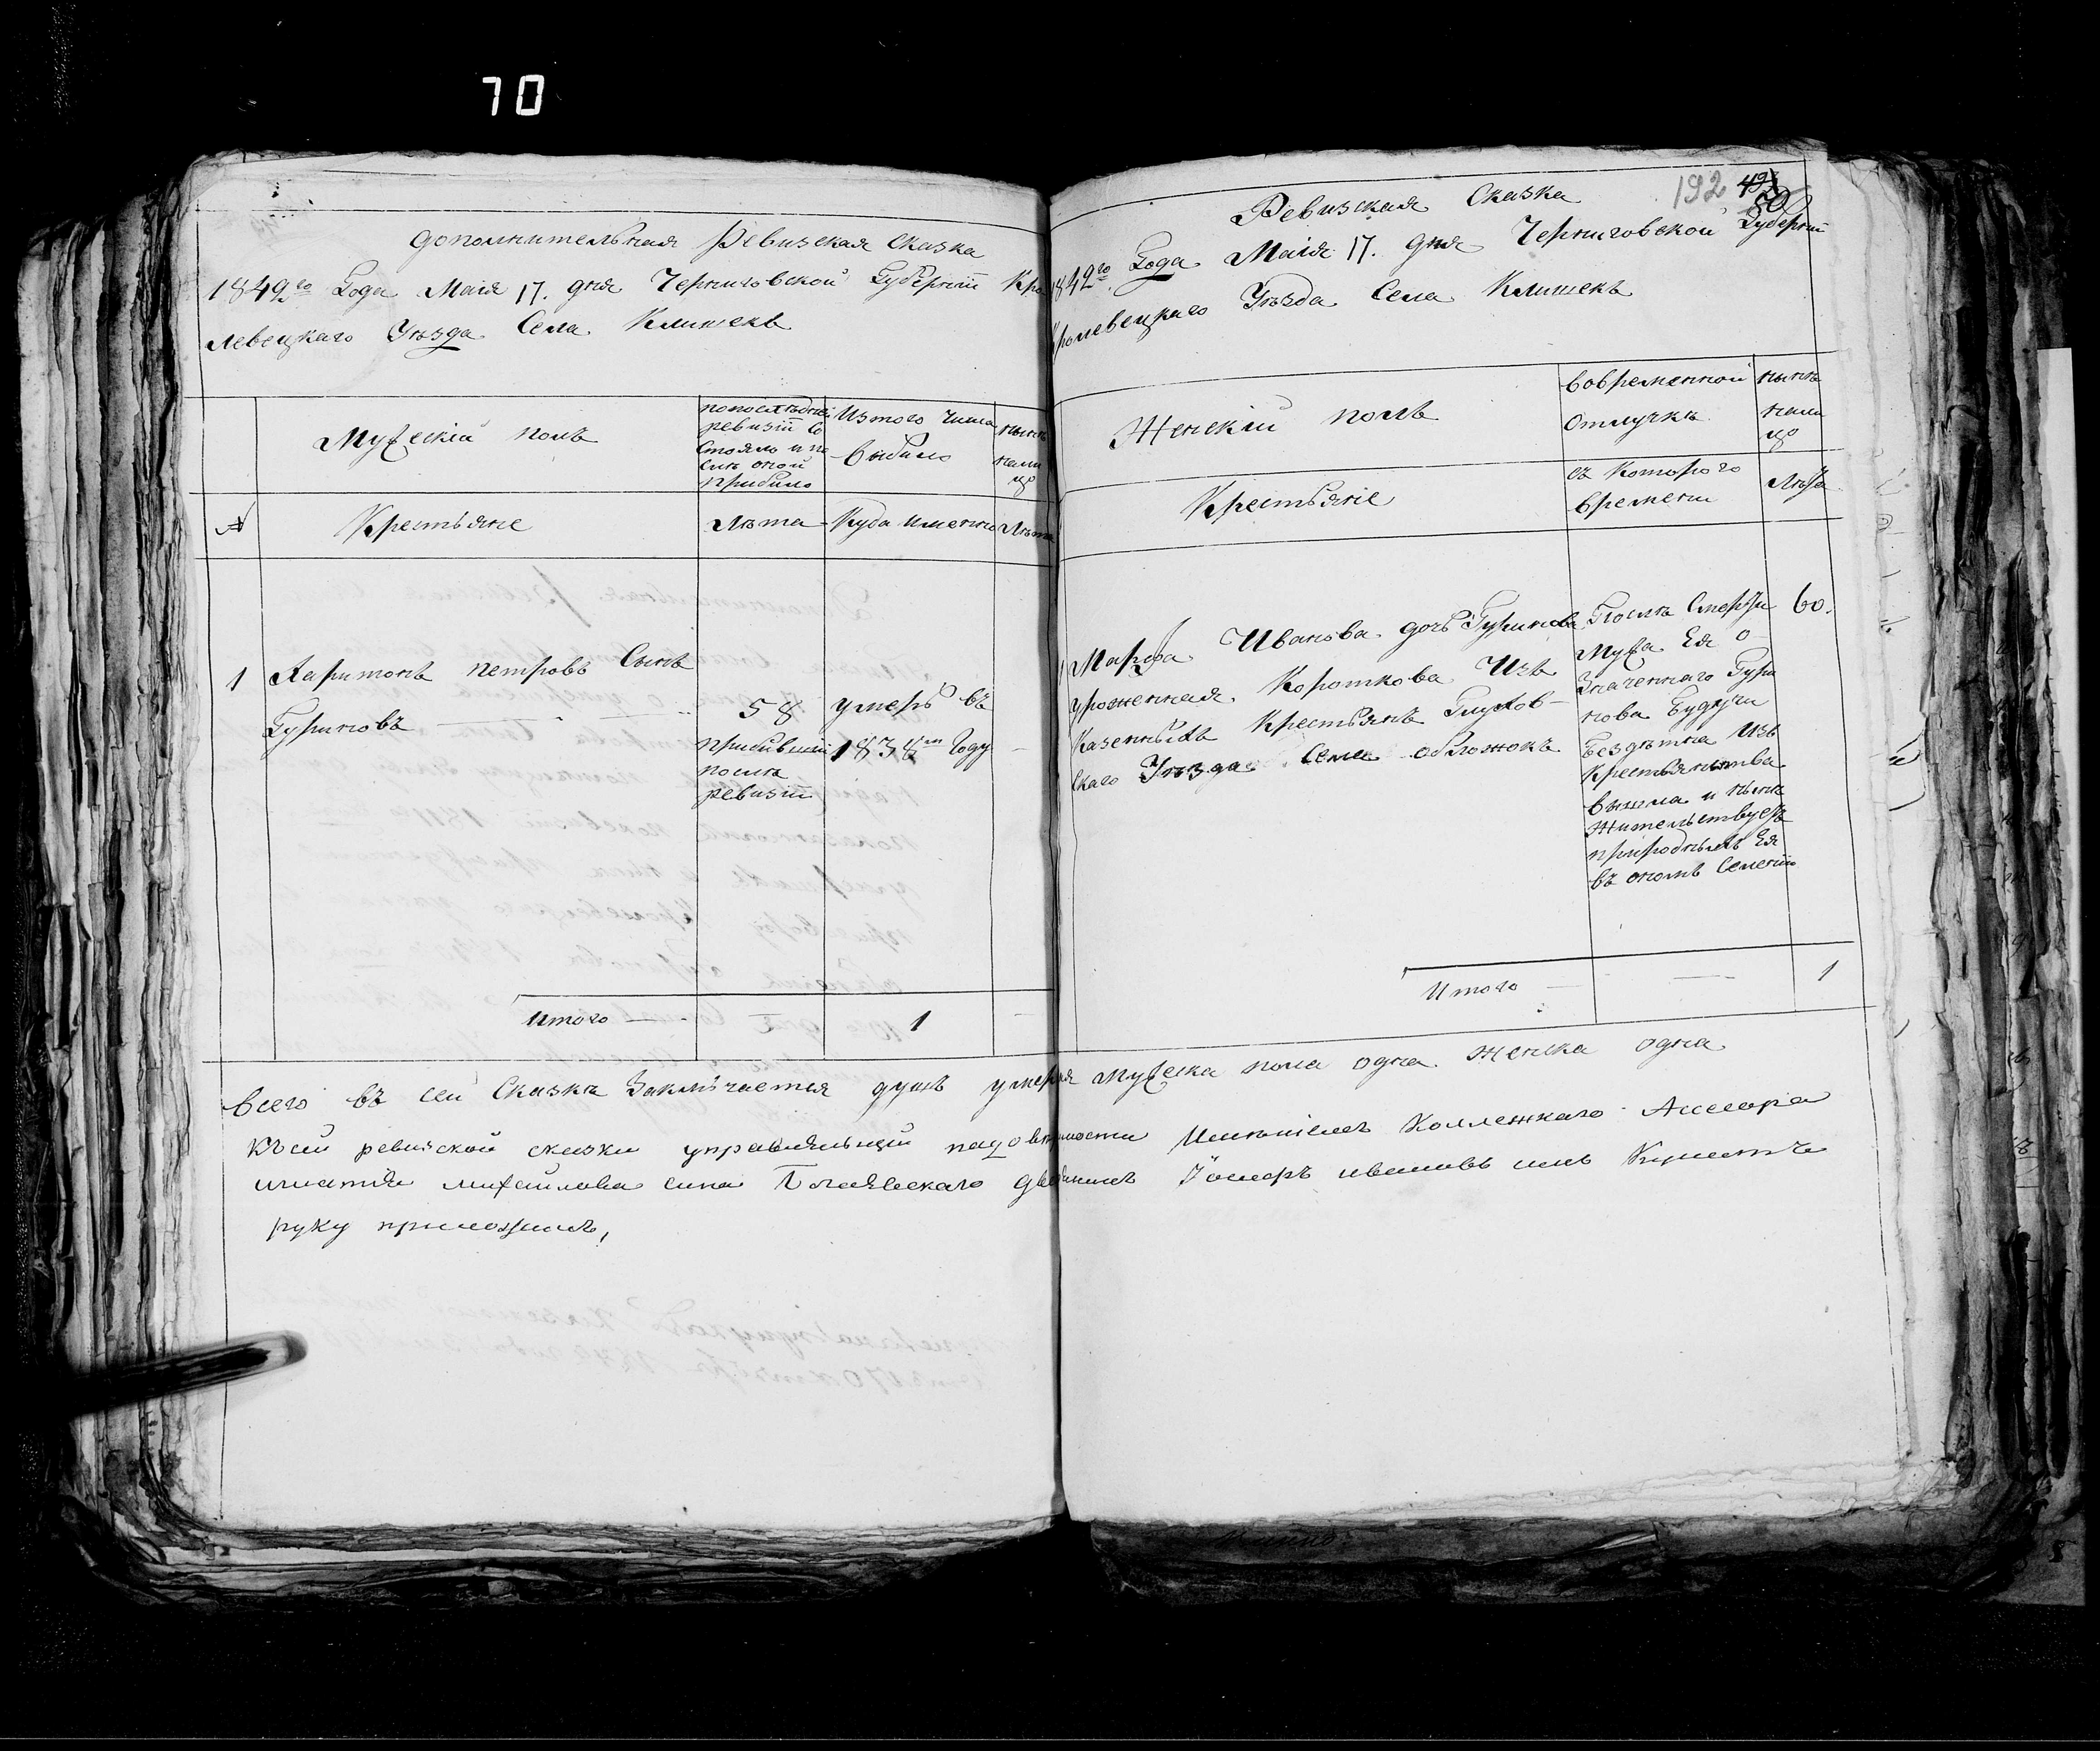 70
дополнительная Ревизская сказка
1849го Года Маия 17. дня Черниговской Губернiи Кро
левецкаго Уѣзда Села Клишекъ
Мужескiй полъ
попоследней
ревизiи со
стояло и по
слѣ оной
прибыло
Изтого числа
выбыло
нынѣ
нали
цо
№
Крестьяне
Лѣта
Куда именно
Лѣта
1
Харитонъ петровъ Сынъ
Гуриновъ
58
прибывшiй
послѣ
ревизiи
умеръ въ
1838м Году
Итого
1
192
50
Ревизская Сказка
1849го Года Маiя 17. дня Черниговской Губернiи
Кролевецкаго Уѣзда Села Клишекъ
Женскiй полъ
вовременной
отлучкѣ
нынѣ
нали
цо
Крестьяне
съ Котораго
времени
Лѣта
Марфа Иванова дочь Гуринова
урожденная Короткова Изъ
Казенныхъ Крестьянъ Глухов-
скаго Уѣзда Села обложокъ
Послѣ Смерти
Мужа Ея о-
Значеннаго Гури
нова Будучи
Бездѣтна Изъ
Крестьянства
вышла и нынѣ
Жительствуетъ
природныхъ Ея
въ ономъ Селенiю
60.
Итого
1
Всего въ сей Сказкѣ Заключается душъ умершая мужеска пола одна женска одна
Късей ревизской сказки управляющiй подовѣренности Имѣнiемъ Коллежкаго Ассесора
игнатiя михайлова сина дворянинъ ивановъ синъ
руку приложилъ,